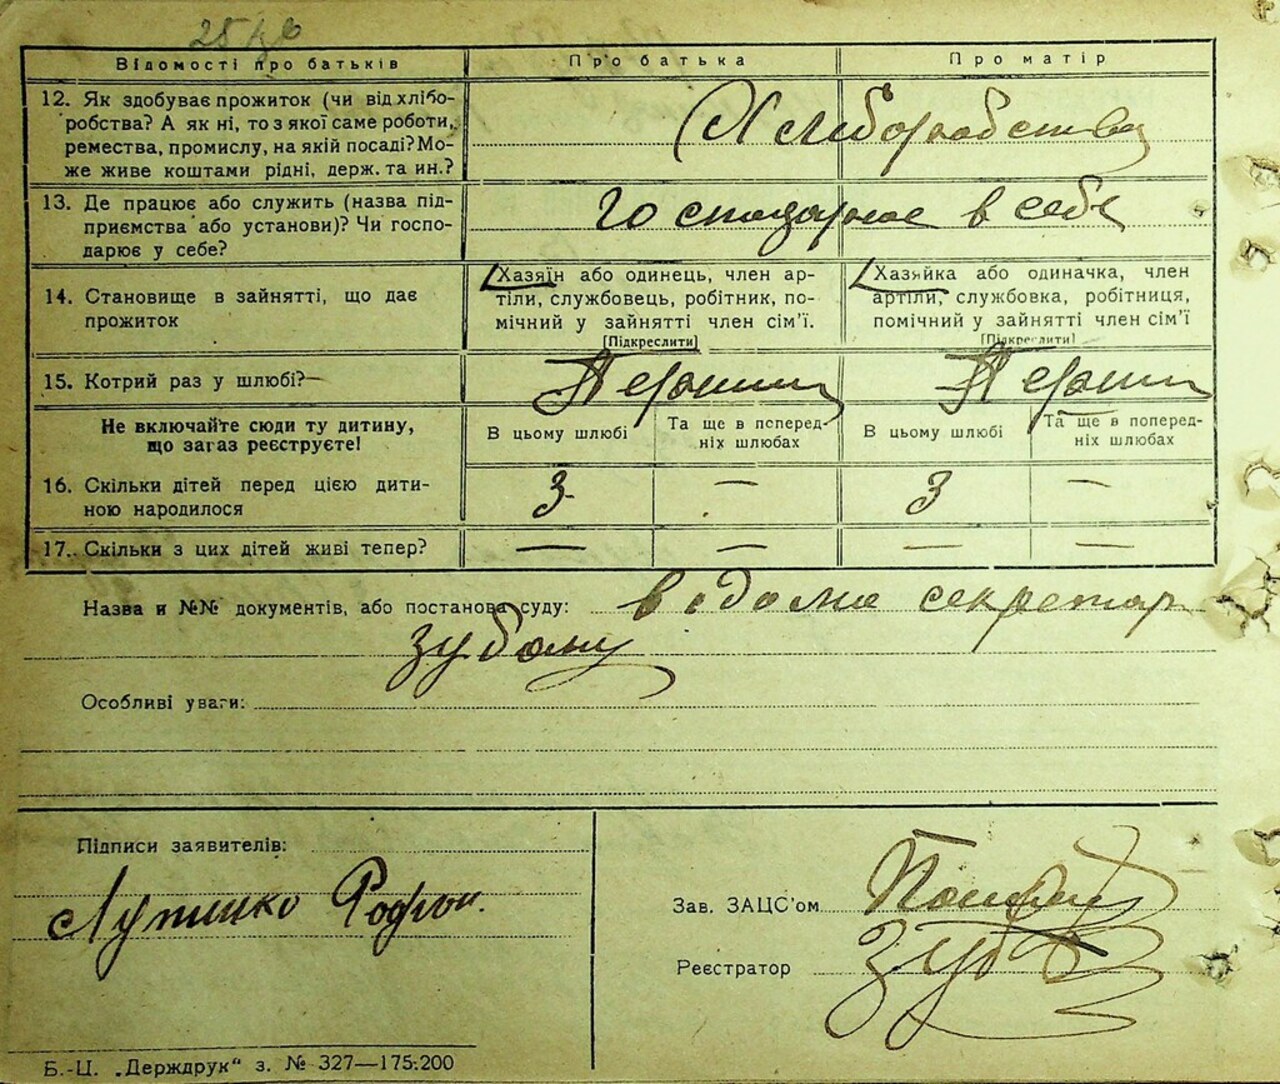 Відомості про батьків
Про батька
Про матір
12. Як здобуває прожиток (чи від хлібо-
робства? А як ні, то з якої саме роботи,
ремества, промислу, на якій посаді? Мо-
же живе коштами рідні, держ. та ин.?
Хлиборобство
13. Де працює або служить (назва під-
приємства або установи)? Чи госпо-
дарює у себе?
господарює в себе
14. Становище в зайнятті, що дає
прожиток
Хазяїн або одинець, член ар-
тіли, службовець, робітник, по-
мічний у зайнятті член сім'ї.
[Підкреслити]
Хазяйка або одиначка, член
артіли, службовка, робітниця,
помічний у зайнятті член сім'ї
[Підкреслити]
15. Котрий раз у шлюбі?
Перший
Перший
Не включайте сюди ту дитину,
що загаз реєструєте!
В цьому шлюбі
Та ще в поперед-
ніх шлюбах
В цьому шлюбі
Та ще в поперед-
ніх шлюбах
16. Скільки дітей перед цією дити-
ною народилося
3
—
3
—
17. Скільки з цих дітей живі тепер?
—
—
—
—
Назва и №№ документів, або постанова суду: відоме секретар
зубому
Особливі уваги:
Підписи заявителів:
Зав. ЗАЦС'ом
Реєстратор Зуб
Б.-Ц. „Держдрук" з. № 327—175.200